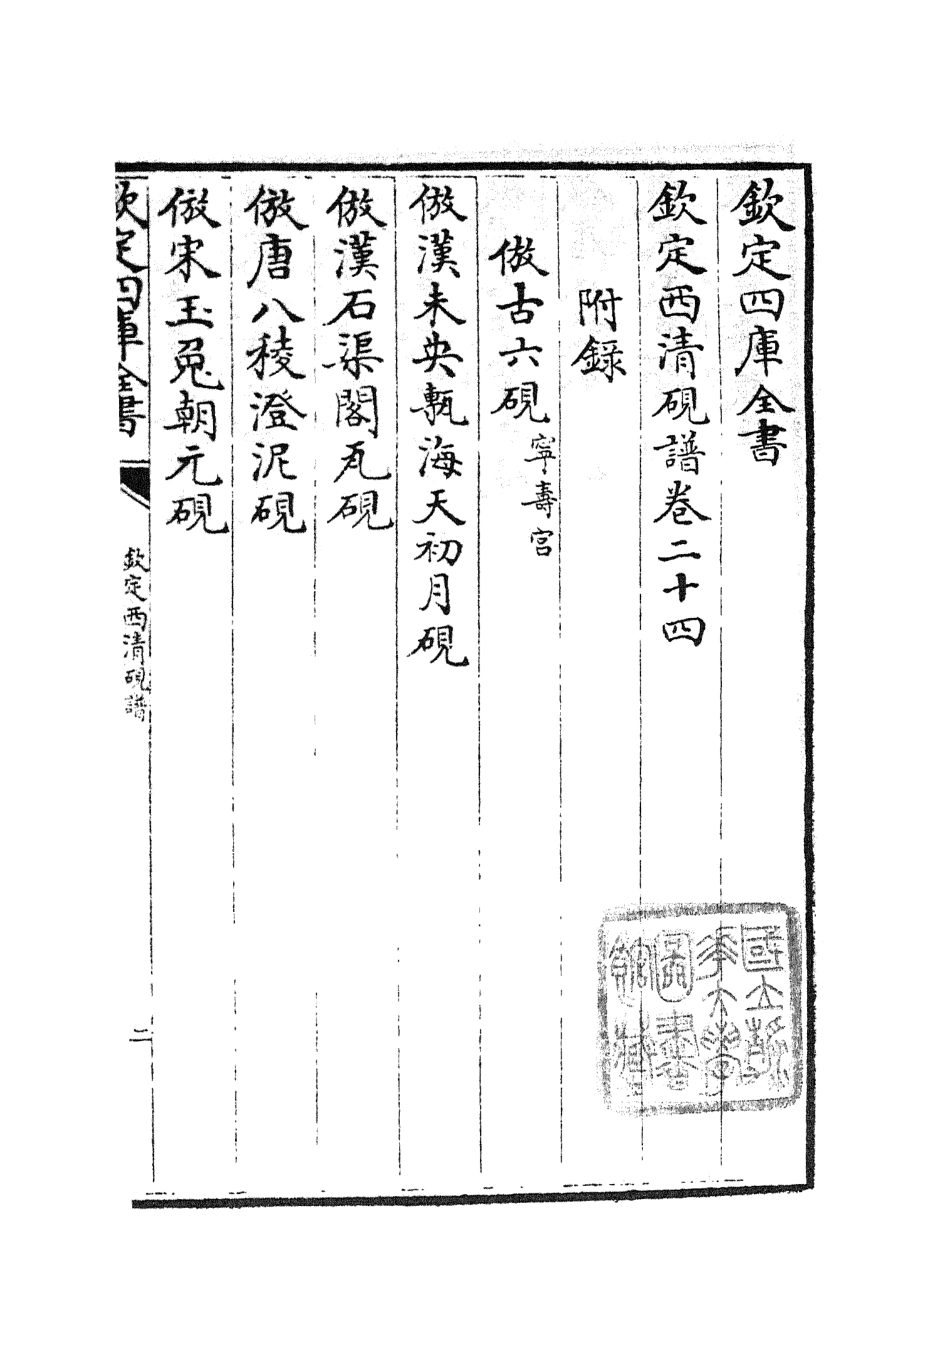 欽定四庫全書
欽定西清硯譜卷二十四
附録
倣古六硯寧壽宮
倣漢未央甎海天初月硯
倣漢石渠閣瓦硯
倣唐八稜澄泥硯
倣宋玉兎朝元硯
欽定四庫全書
欽定西清硯譜
二
國立清
華大學
圖書
館藏